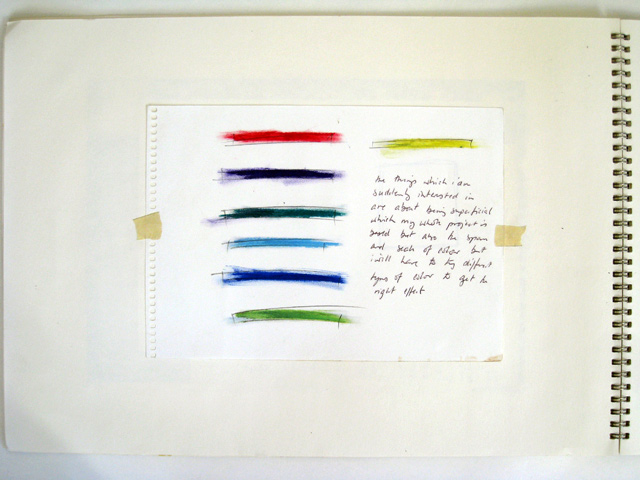 the things which i am
suddenly interested in
are about being superficial
which my whole project is
based but also the
and of colour but
i will have to try different
types of color to get the
right effect